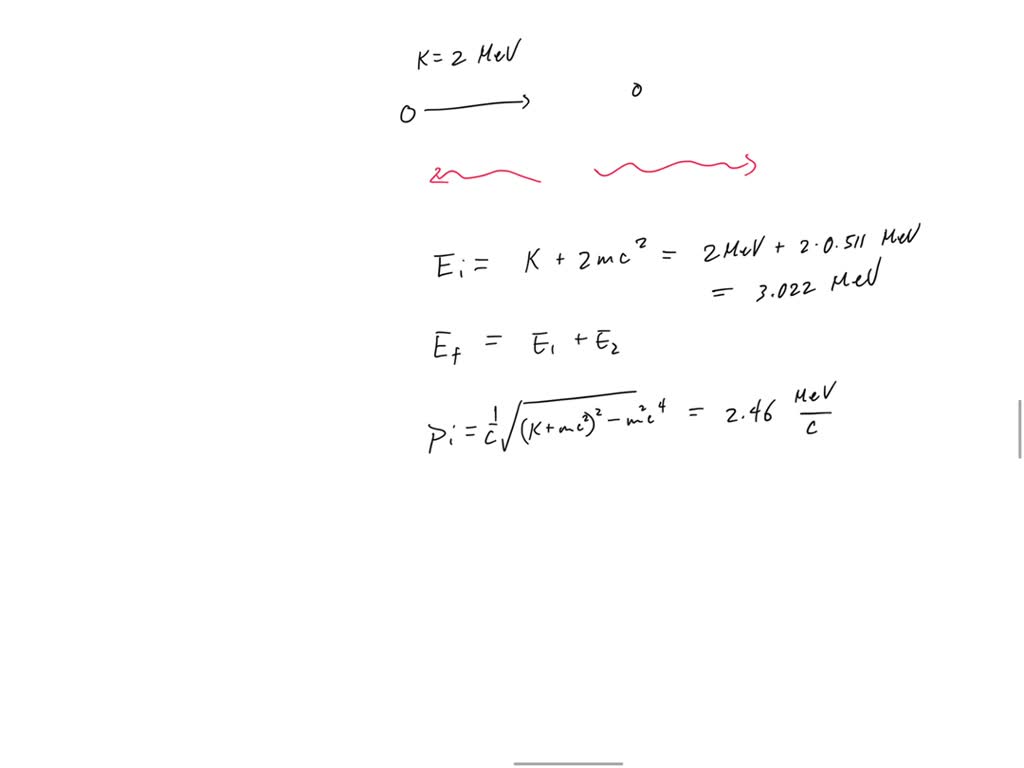 K = 2 MeV
E_i = K + 2mc² = 2 MeV + 2·0.511 MeV
= 3.022 MeV
E_f = E_1 + E_2
p_i = 1/c √((K + mc²)² − m²c⁴) = 2.46 MeV/c